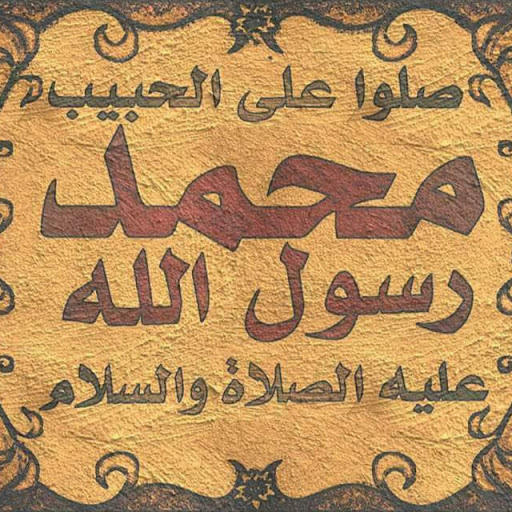 صلوا على الحبيب
محمد
رسول الله
عليه الصلاة والسلام